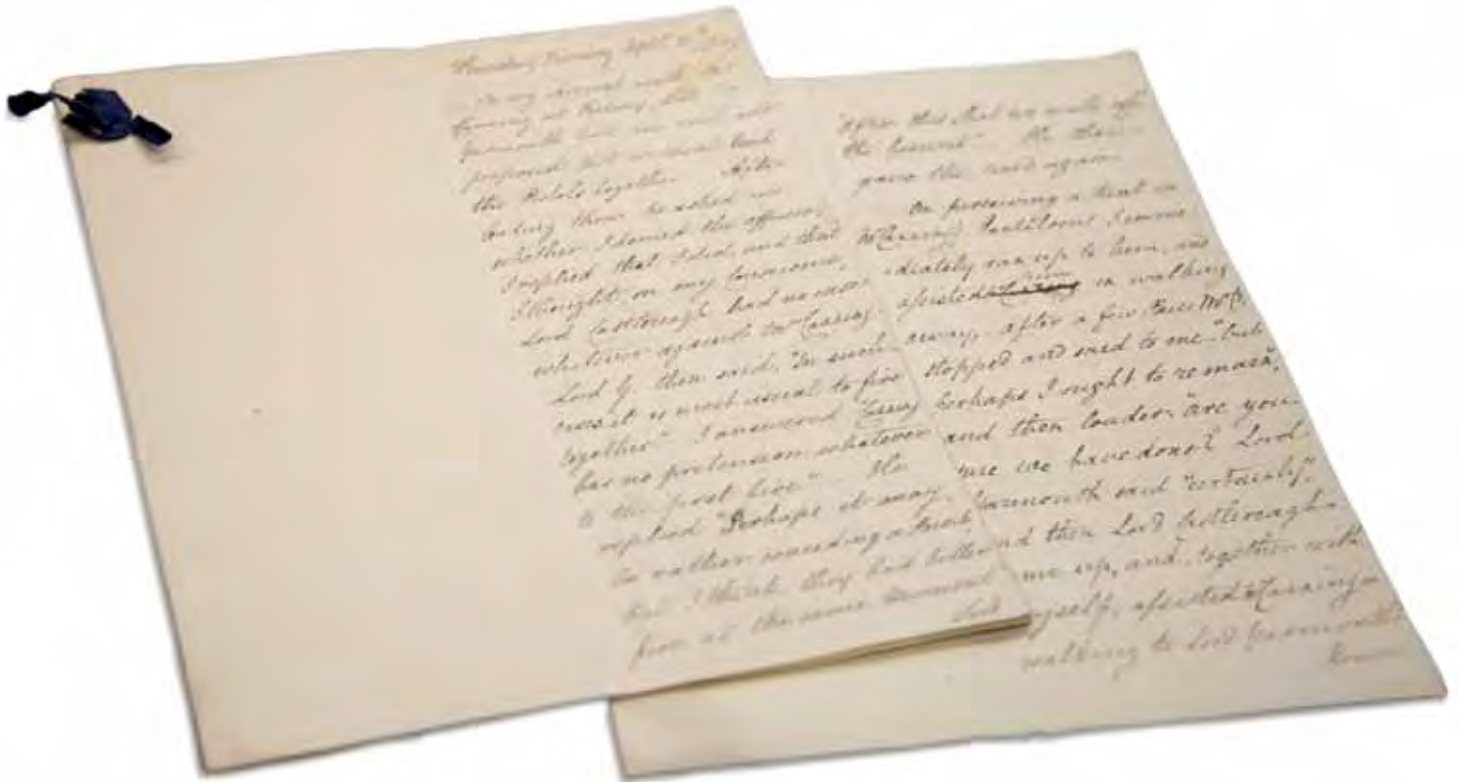 Thursday Morning Sept 21st
On my arrival with Mr
Canning at Putney, Lord
Yarmouth met me and
proposed that we should load
the Pistols together. After
loading them he asked me
whether I desired the
I replied that I did, and that
I thought, on my
Lord Castlereagh had no more
whatever against Mr Canning.
Lord Y. then said, "In such
cases it is most usual to fire
together" I answered Canning
has no pretension whatever
to the first fire". He
replied "Perhaps it may
be rather
but I think they had better
fire at the same moment
Lord
After this shot we must
the ground" He then
gave the word again
On perceiving a
Mr Canning's Pantaloons I imme
-diately ran up to him, and
assisted him in walking
away, after a few Paces Mr C.
stopped and said to me "but
perhaps I ought to remain",
and then louder "are you
sure we have done?" Lord
Yarmouth said "certainly".
and then Lord Castlereagh
came up, and together with
myself, assisted Mr Canning in
walking to Lord Yarmouth's